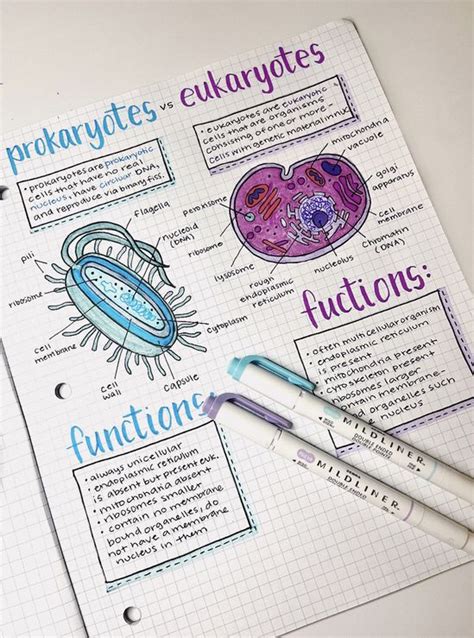 prokaryotes vs eukaryotes
• prokaryotes are prokaryotic
cells that have no real
nucleus, have circular DNA,
and reproduce via binary fiss.
• eukaryotes are eukaryotic
cells that are organisms
consisting of one or more
cells with genetic material in nuc
flagella
nucleoid
(DNA)
pili
ribosome
cell
membrane
cell
wall
capsule
cytoplasm
mitochondria
vacuole
golgi
apparatus
cell
membrane
chromatin
(DNA)
nucleolus
rough
endoplasmic
reticulum
lysosome
ribosome
peroxisome
fuctions:
• often multicellular organism
• endoplasmic reticulum
is present
• mitochondria present
• cytoskeleton present
• ribosomes larger
contain membrane-
organelles such
nucleus
functions
• always unicellular
• endoplasmic reticulum
is absent but present euk.
• mitochondria absent
• ribosomes smaller
• contain no membrane
bound organelles, do
not have a membrane
nucleus in them
MILDLINER
DOUBLE ENDED
MILDLINER
DOUBLE ENDED